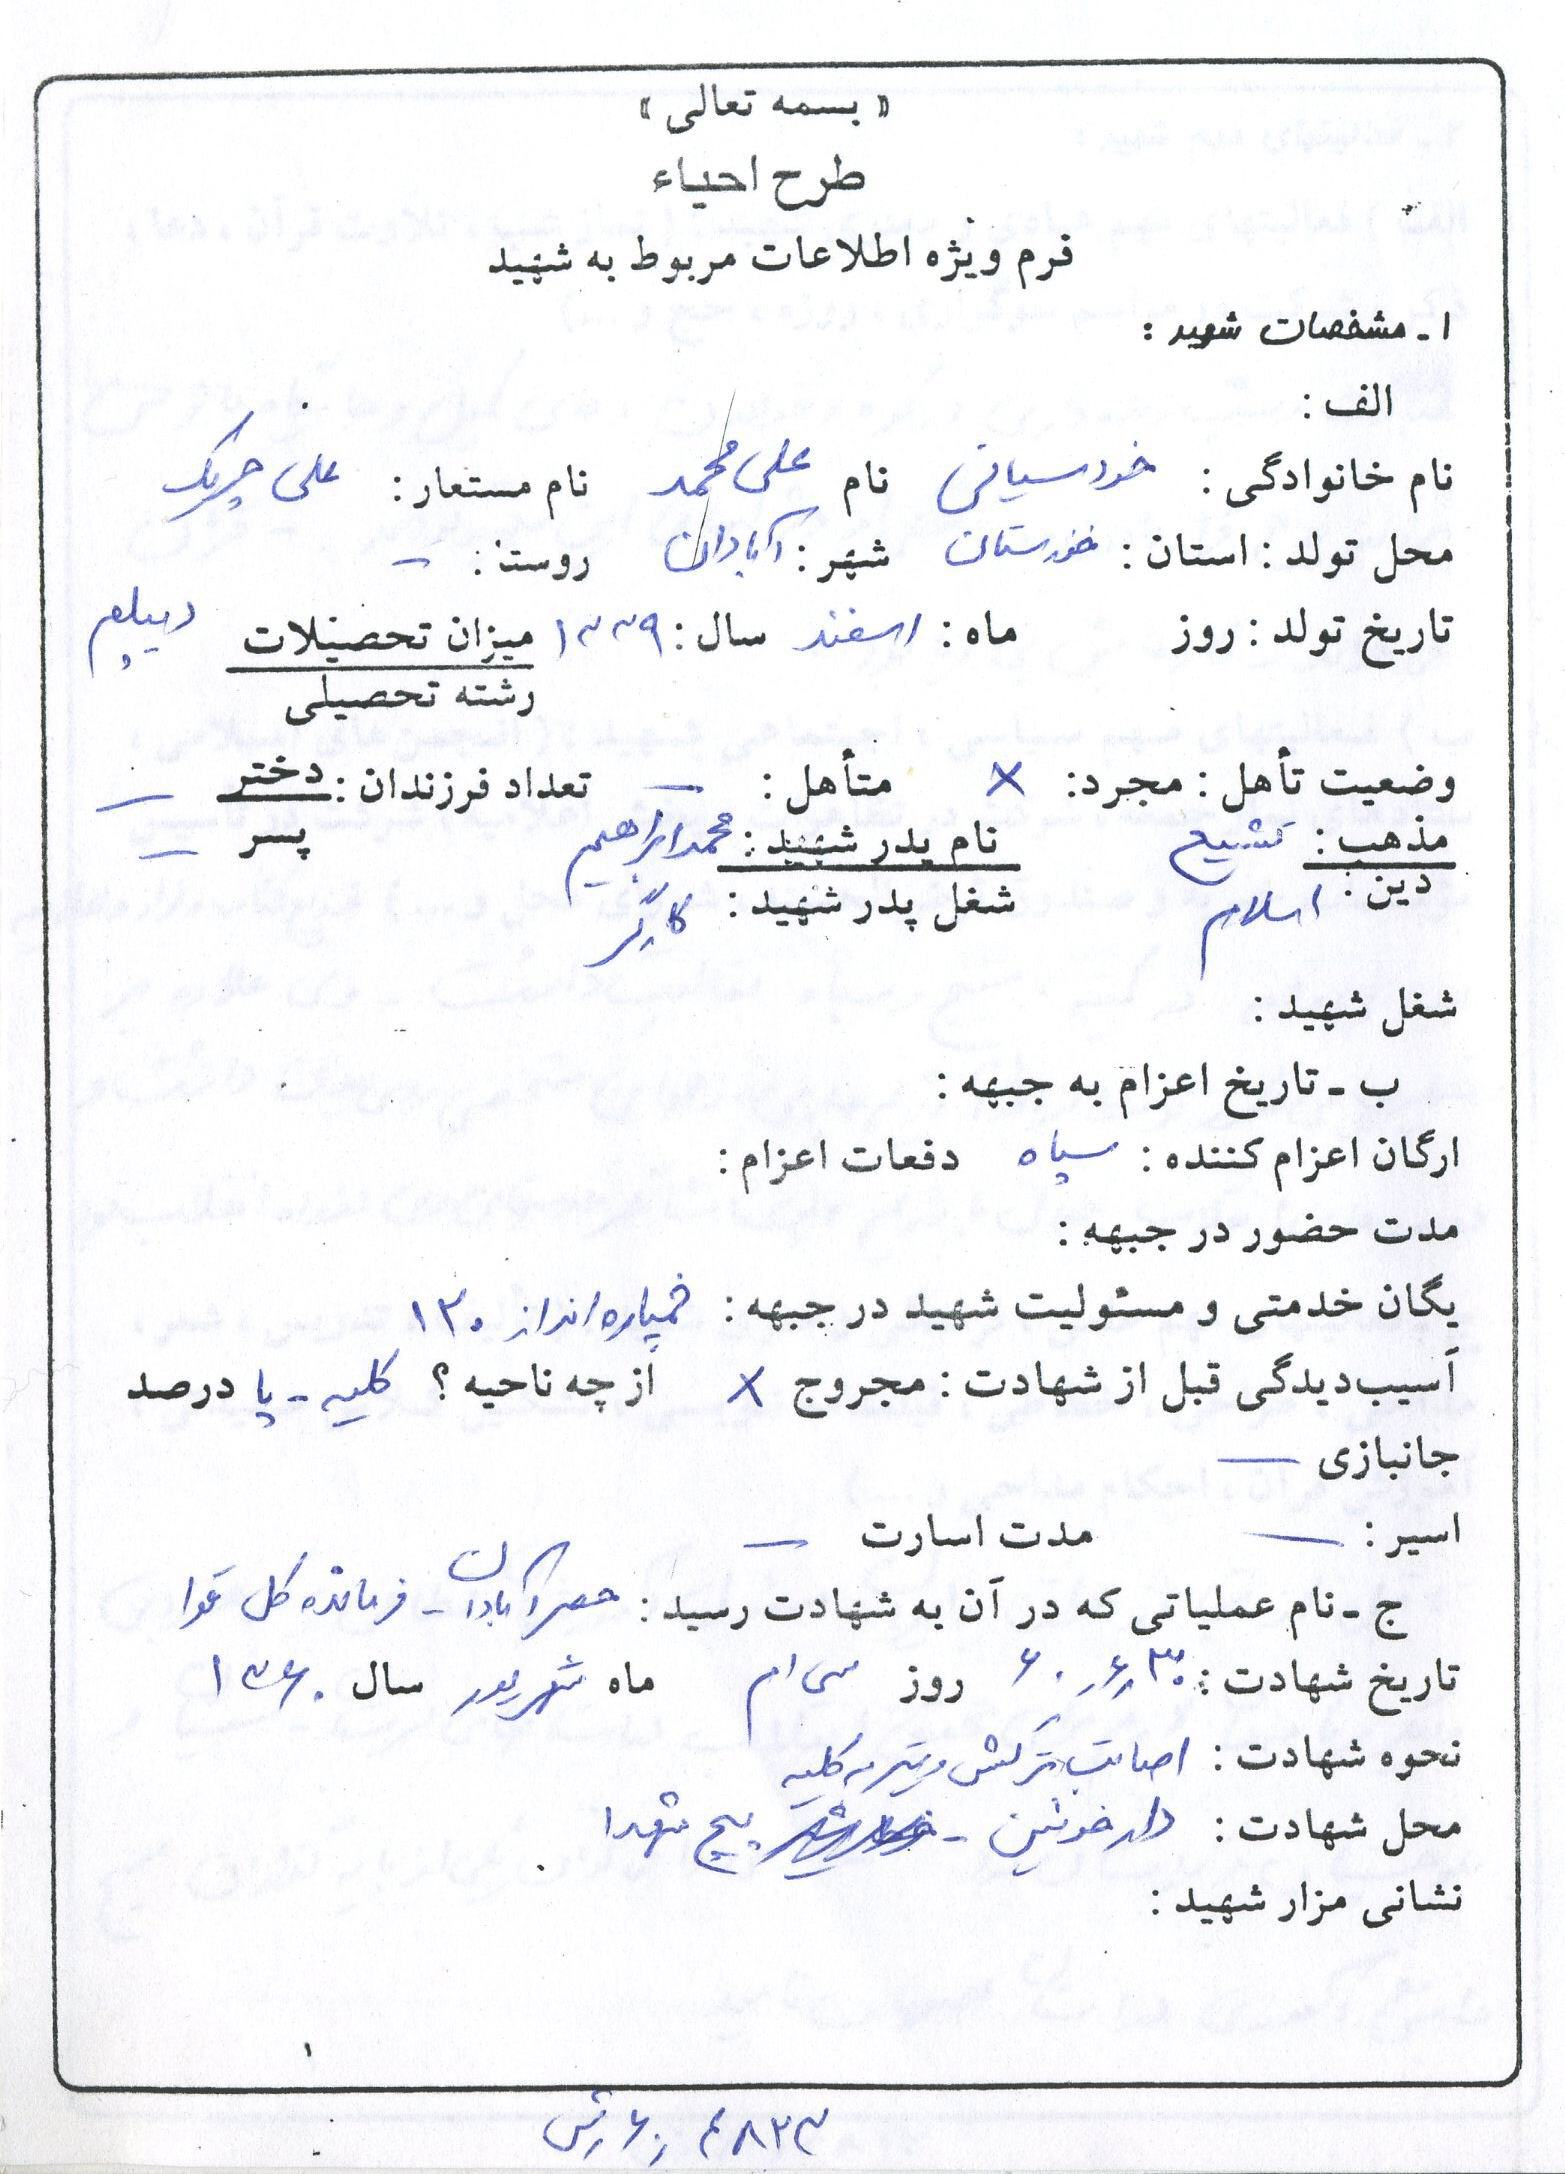 « بسمه تعالی »
طرح احیاء
فرم ویژه اطلاعات مربوط به شهید
۱ـ مشخصات شهید :
الف :
نام خانوادگی : خودسیانی نام علی محمد نام مستعار : علی چریک
محل تولد : استان : خوزستان شهر : آبادان روستا : –
تاریخ تولد : روز ماه : اسفند سال : ۱۳۳۹ میزان تحصیلات دیپلم
رشته تحصیلی
وضعیت تأهل : مجرد : × متأهل : — تعداد فرزندان : دختر —
پسر —
مذهب : تشیع نام پدر شهید : محمدابراهیم
دین : اسلام شغل پدر شهید : کارگر
شغل شهید :
ب ـ تاریخ اعزام به جبهه :
ارگان اعزام کننده : سپاه دفعات اعزام :
مدت حضور در جبهه :
یگان خدمتی و مسئولیت شهید در جبهه : خمپاره انداز ۱۲۰
آسیب‌دیدگی قبل از شهادت : مجروح × از چه ناحیه ؟ کلیه ـ پا درصد
جانبازی —
اسیر : — مدت اسارت —
ج ـ نام عملیاتی که در آن به شهادت رسید : حصر آبادان ـ فرمانده کل قوا
تاریخ شهادت : ۶۰٫۶٫۳۰ روز سی ام ماه شهریور سال ۱۳۶۰
نحوه شهادت : اصابت ترکش و تیر به کلیه
محل شهادت : دارخوئین ـ پیچ شهدا
نشانی مزار شهید :
۱